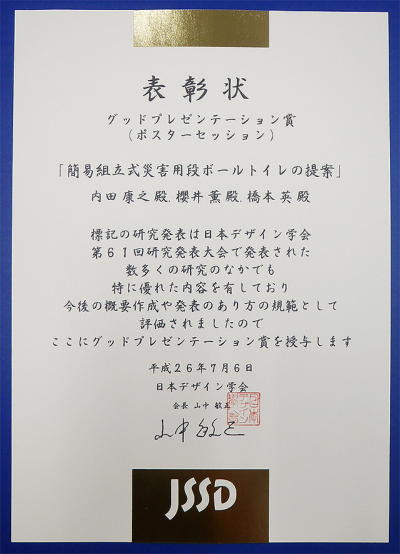 表彰状
グッドプレゼンテーション賞
(ポスターセッション)
「簡易組立式災害用段ボールトイレの提案」
内田康之殿、櫻井薫殿、橋本英殿
標記の研究発表は日本デザイン学会
第61回研究発表大会で発表された
数多くの研究のなかでも
特に優れた内容を有しており
今後の概要作成や発表のあり方の規範として
評価されましたので
ここにグッドプレゼンテーション賞を授与します
平成26年7月6日
日本デザイン学会
会長 山中敏正
山中敏正
JSSD